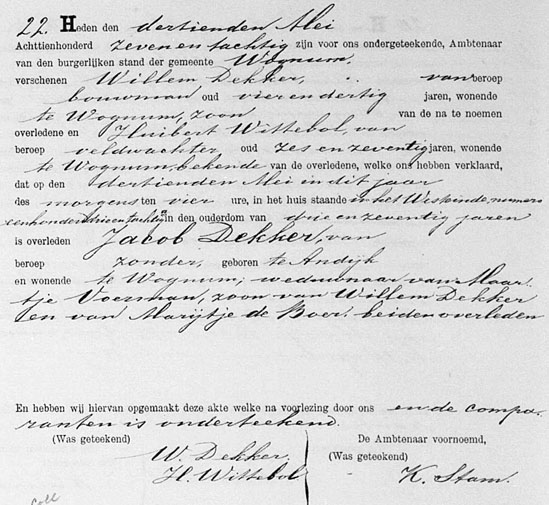 22. Heden den dertienden Mei
Achttienhonderd zeven en tachtig zijn voor ons ondergeteekende, Ambtenaar
van den burgerlijken stand der gemeente Wognum.
verschenen Willem Dekker, van beroep
bouwman oud vier en dertig jaren, wonende
te Wognum, zoon van de na te noemen
overledene en Huibert Wittebol, van
beroep veldwachter oud zes en zeventig jaren, wonende
te Wognum, bekende van de overledene, welke ons hebben verklaard,
dat op den dertienden Mei in dit jaar
des morgens ten vier ure, in het huis staande in het Westeinde, numero
eenhonderd drie en tachtig in den ouderdom van drie en zeventig jaren
is overleden Jacob Dekker, van
beroep zonder, geboren te Andijk
en wonende te Wognum, weduwnaar van Maar
tje Voerman, zoon van Willem Dekker
en van Marijtje de Boer. beiden overleden
En hebben wij hiervan opgemaakt deze akte welke na voorlezing door ons en de compa-
ranten is onderteekend.
(Was geteekend) De Ambtenaar voornoemd,
W. Dekker. (Was geteekend)
H. Wittebol K. Stam.
Coll